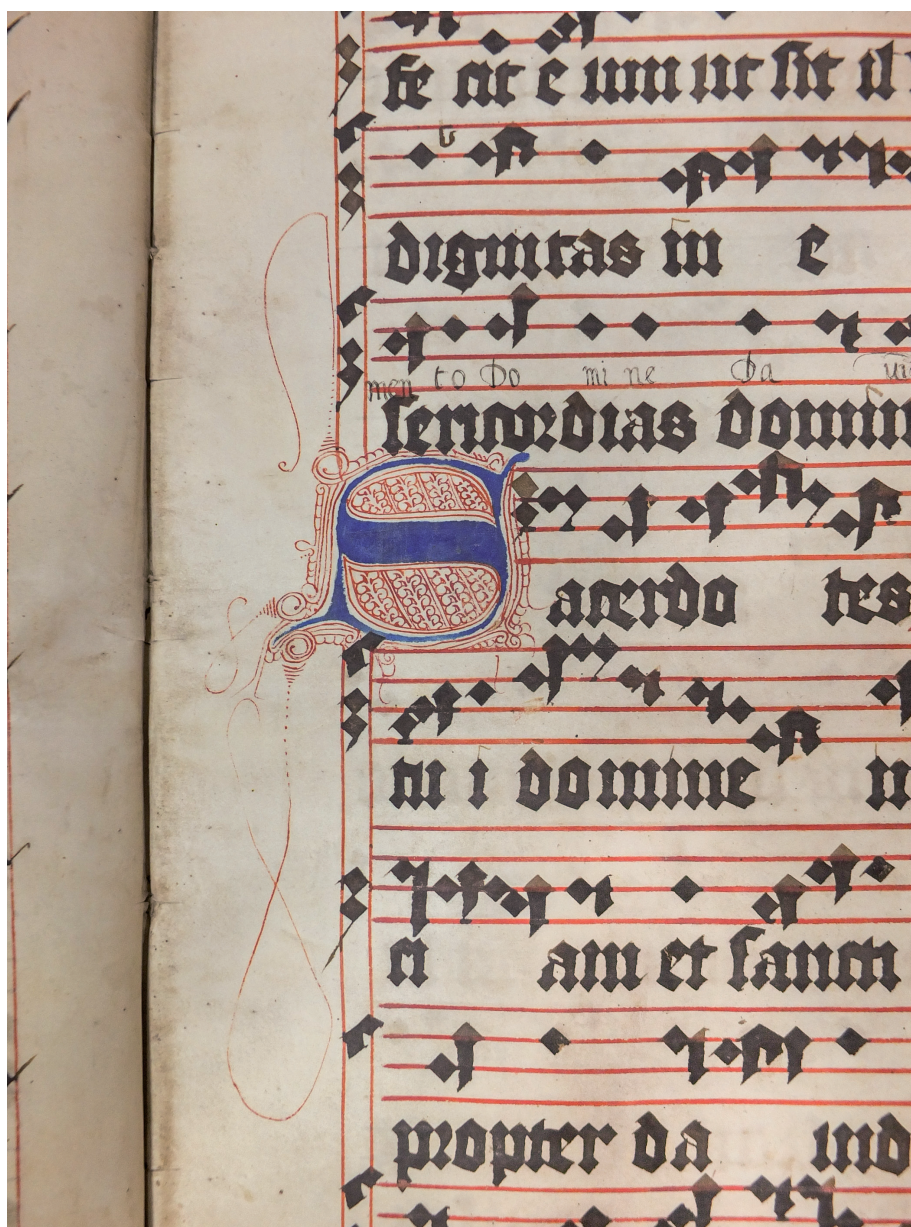 fe cit e um ut sit il
dignitas in e
men to Do mi ne Da
sericordias domin
Sacerdo tes
tu i domine
ci am et sancti
propter da ind